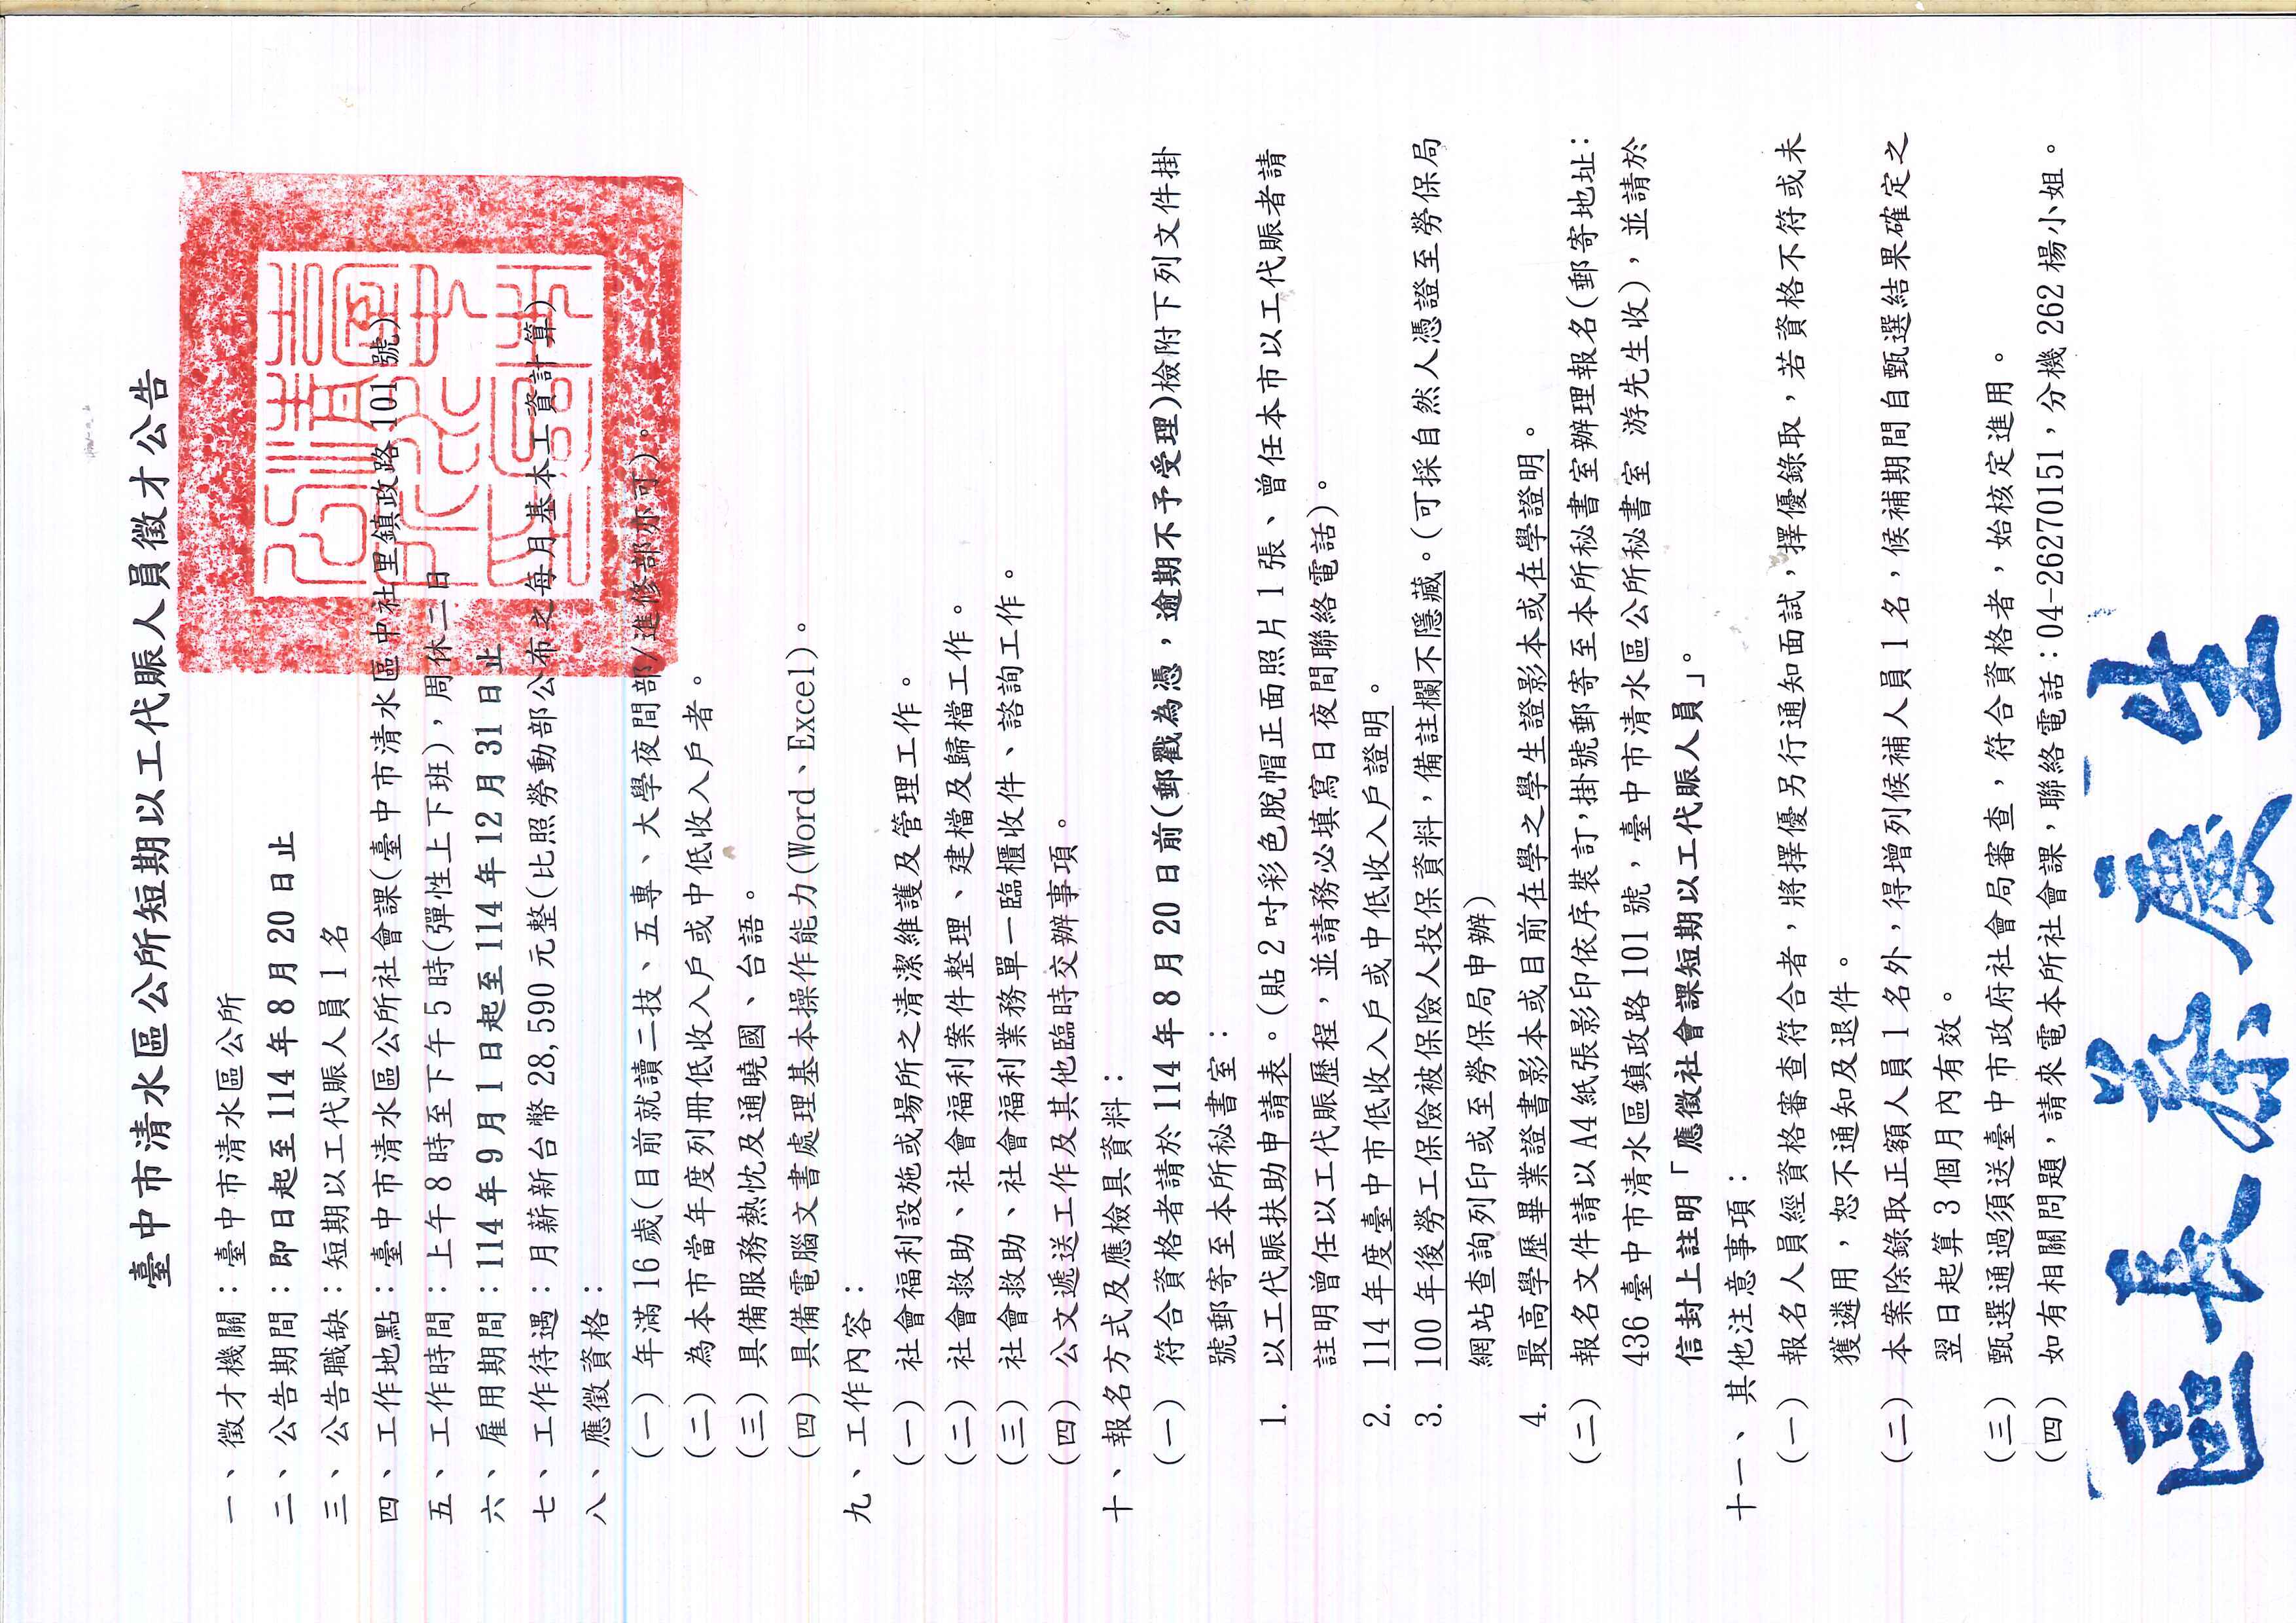 臺中市清水區公所短期以工代賑人員徵才公告
一、徵才機關：臺中市清水區公所
二、公告期間：即日起至114年8月20日止
三、公告職缺：短期以工代賑人員1名
四、工作地點：臺中市清水區公所社會課(臺中市清水區中社里鎮政路101號)
五、工作時間：上午8時至下午5時(彈性上下班)，周休二日
六、雇用期間：114年9月1日起至114年12月31日止
七、工作待遇：月薪新台幣28,590元整(比照勞動部公布之每月基本工資計算)
八、應徵資格：
(一) 年滿16歲(目前就讀二技、五專、大學夜間部/進修部亦可)。
(二) 為本市當年度列冊低收入戶或中低收入戶者。
(三) 具備服務熱忱及通曉國、台語。
(四) 具備電腦文書處理基本操作能力(Word、Excel)。
九、工作內容：
(一) 社會福利設施或場所之清潔維護及管理工作。
(二) 社會救助、社會福利案件整理、建檔及歸檔工作。
(三) 社會救助、社會福利業務單一臨櫃收件、諮詢工作。
(四) 公文遞送工作及其他臨時交辦事項。
十、報名方式及應檢具資料：
(一) 符合資格者請於114年8月20日前(郵戳為憑，逾期不予受理)檢附下列文件掛
號郵寄至本所秘書室：
1. 以工代賑扶助申請表。(貼2吋彩色脫帽正面照片1張、曾任本市以工代賑者請
註明曾任以工代賑歷程，並請務必填寫日夜間聯絡電話)。
2. 114年度臺中市低收入戶或中低收入戶證明。
3. 100年後勞工保險被保險人投保資料，備註欄不隱藏。(可採自然人憑證至勞保局
網站查詢列印或至勞保局申辦)
4. 最高學歷畢業證書影本或目前在學之學生證影本或在學證明。
(二) 報名文件請以A4紙張影印依序裝訂，掛號郵寄至本所秘書室辦理報名(郵寄地址：
436臺中市清水區鎮政路101號，臺中市清水區公所秘書室 游先生收)，並請於
信封上註明「應徵社會課短期以工代賑人員」。
十一、其他注意事項：
(一) 報名人員經資格審查符合者，將擇優另行通知面試，擇優錄取，若資格不符或未
獲遴用，恕不通知及退件。
(二) 本案除錄取正額人員1名外，得增列候補人員1名，候補期間自甄選結果確定之
翌日起算3個月內有效。
(三) 甄選通過須送臺中市政府社會局審查，符合資格者，始核定進用。
(四) 如有相關問題，請來電本所社會課，聯絡電話：04-26270151，分機262楊小姐。
區長蔡慶生